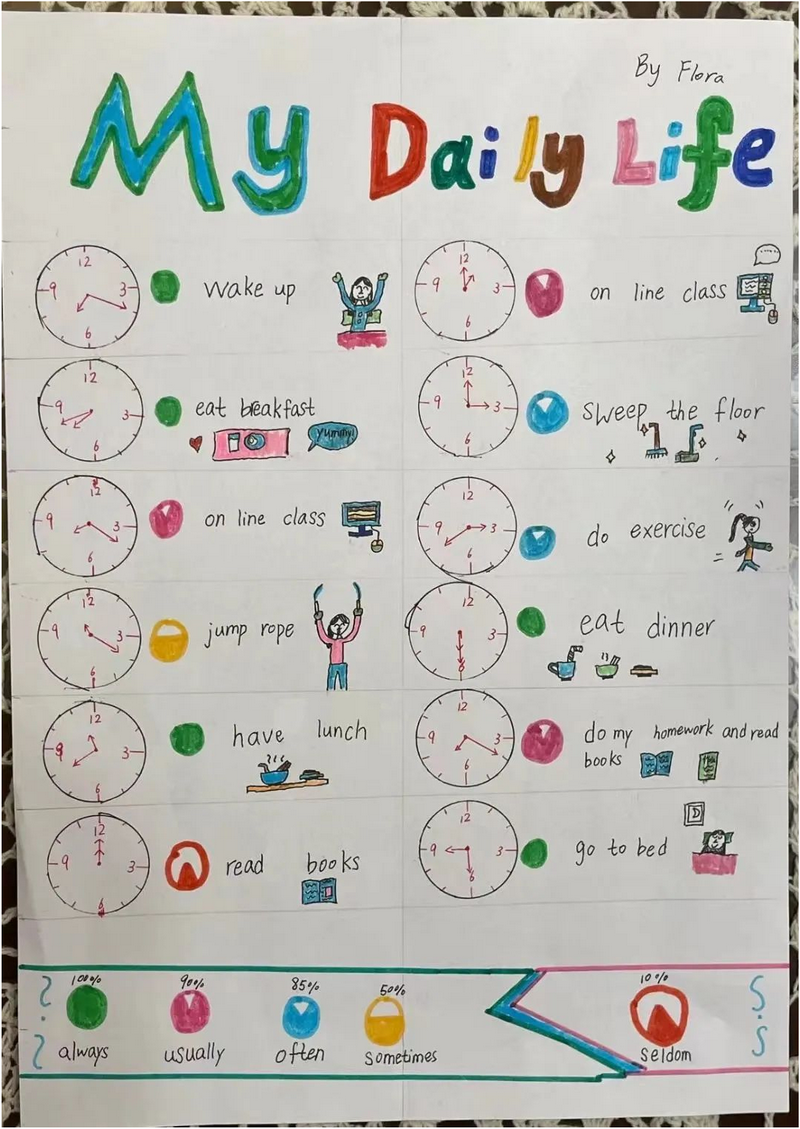 By Flora
My Daily Life
12
9 3
6
wake up
12
9 3
6
eat breakfast
yummy!
12
9 3
6
on line class
12
9 3
6
jump rope
12
9 3
6
have lunch
12
9 3
6
read books
12
9 3
6
on line class
12
9 3
6
sweep the floor
12
9 3
6
do exercise
12
9 3
6
eat dinner
12
9 3
6
do my homework and read
books
12
9 3
6
D
go to bed
100% 90% 85% 50% 10%
always usually often sometimes seldom